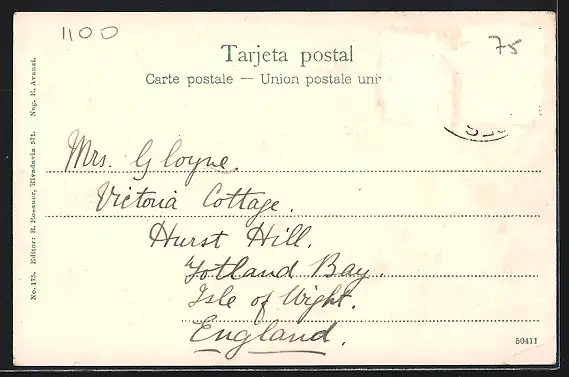 1100
75
Tarjeta postal
Carte postale — Union postale uni
Mrs. Gloyne.
Victoria Cottage.
Hurst Hill.
Totland Bay.
Isle of Wight.
England.
No. 175. Editor: R. Rosauer, Rivadavia 571. Neg. E. Avanzi.
50411